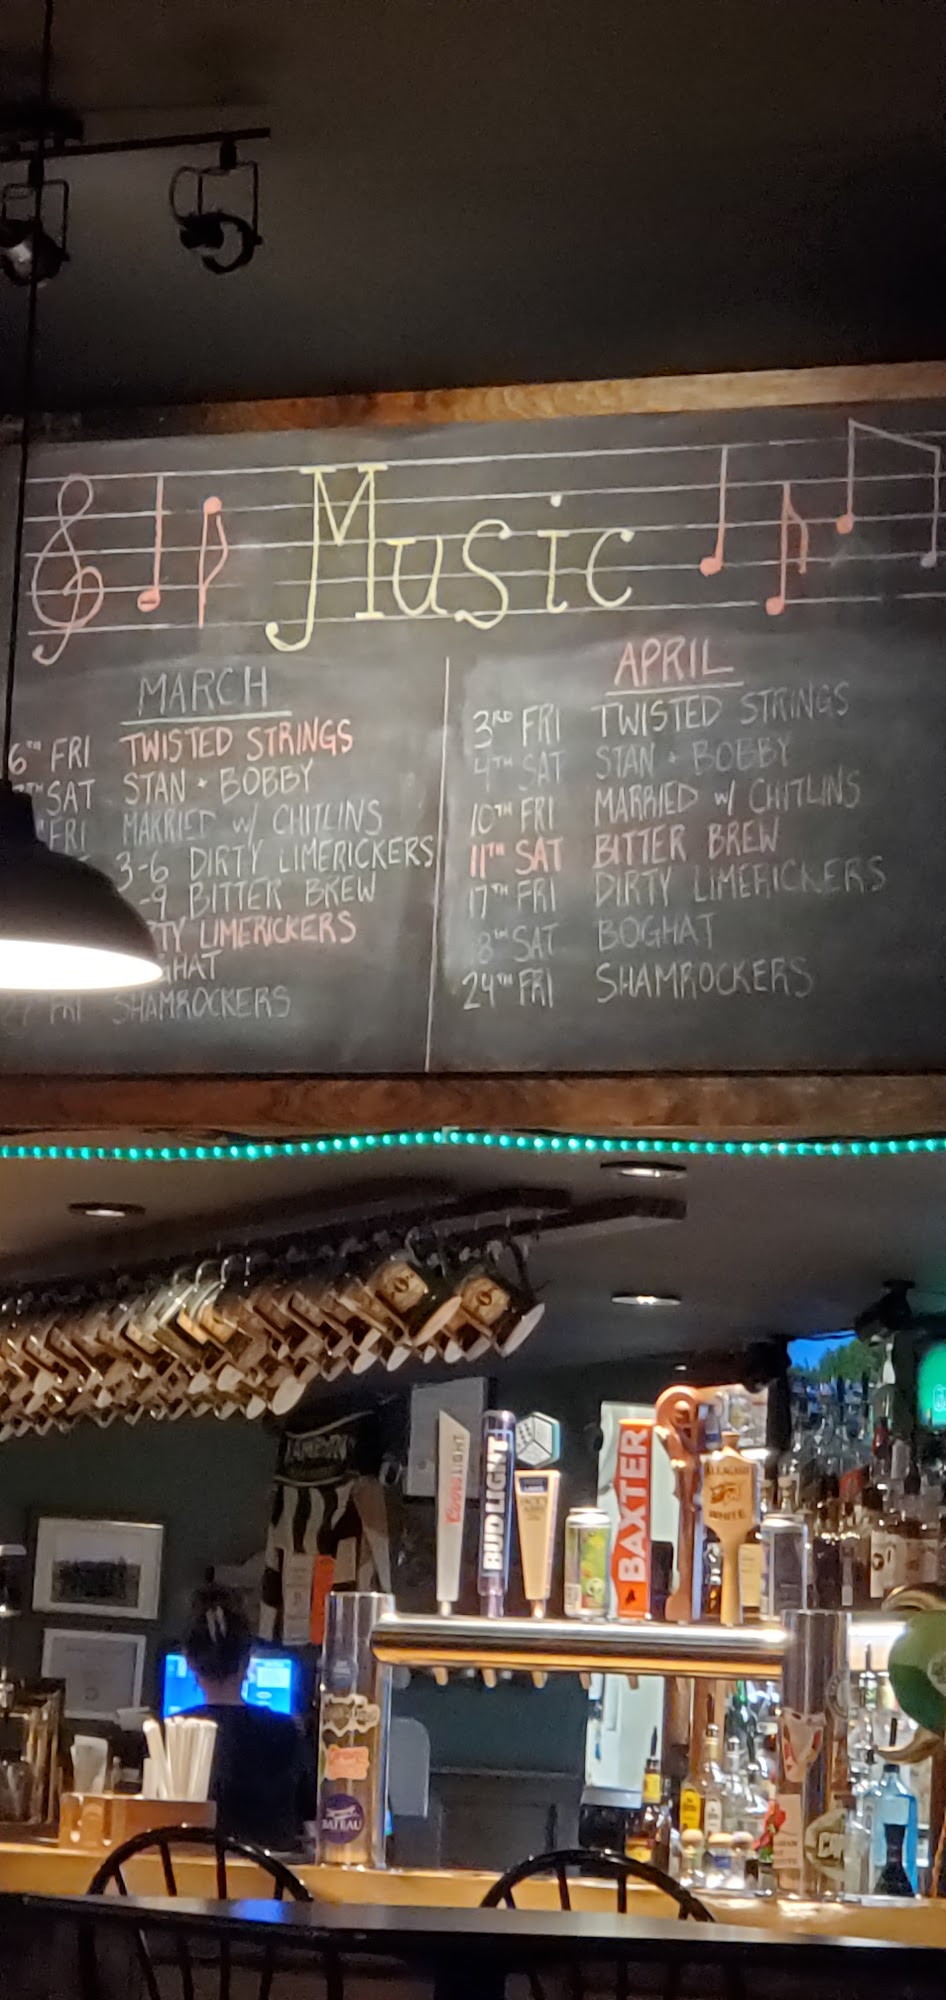 Music
MARCH
6TH FRI TWISTED STRINGS
SAT STAN + BOBBY
FRI MARRIED W/ CHITLINS
3-6 DIRTY LIMERICKERS
-9 BITTER BREW
TY LIMERICKERS
GHAT
FRI SHAMROCKERS
APRIL
3RD FRI TWISTED STRINGS
4TH SAT STAN + BOBBY
10TH FRI MARRIED W/ CHITLINS
11TH SAT BITTER BREW
17TH FRI DIRTY LIMERICKERS
18TH SAT BOGHAT
24TH FRI SHAMROCKERS
Coors LIGHT
BUD LIGHT
BAXTER
ALLAGASH
WHITE
BATEAU